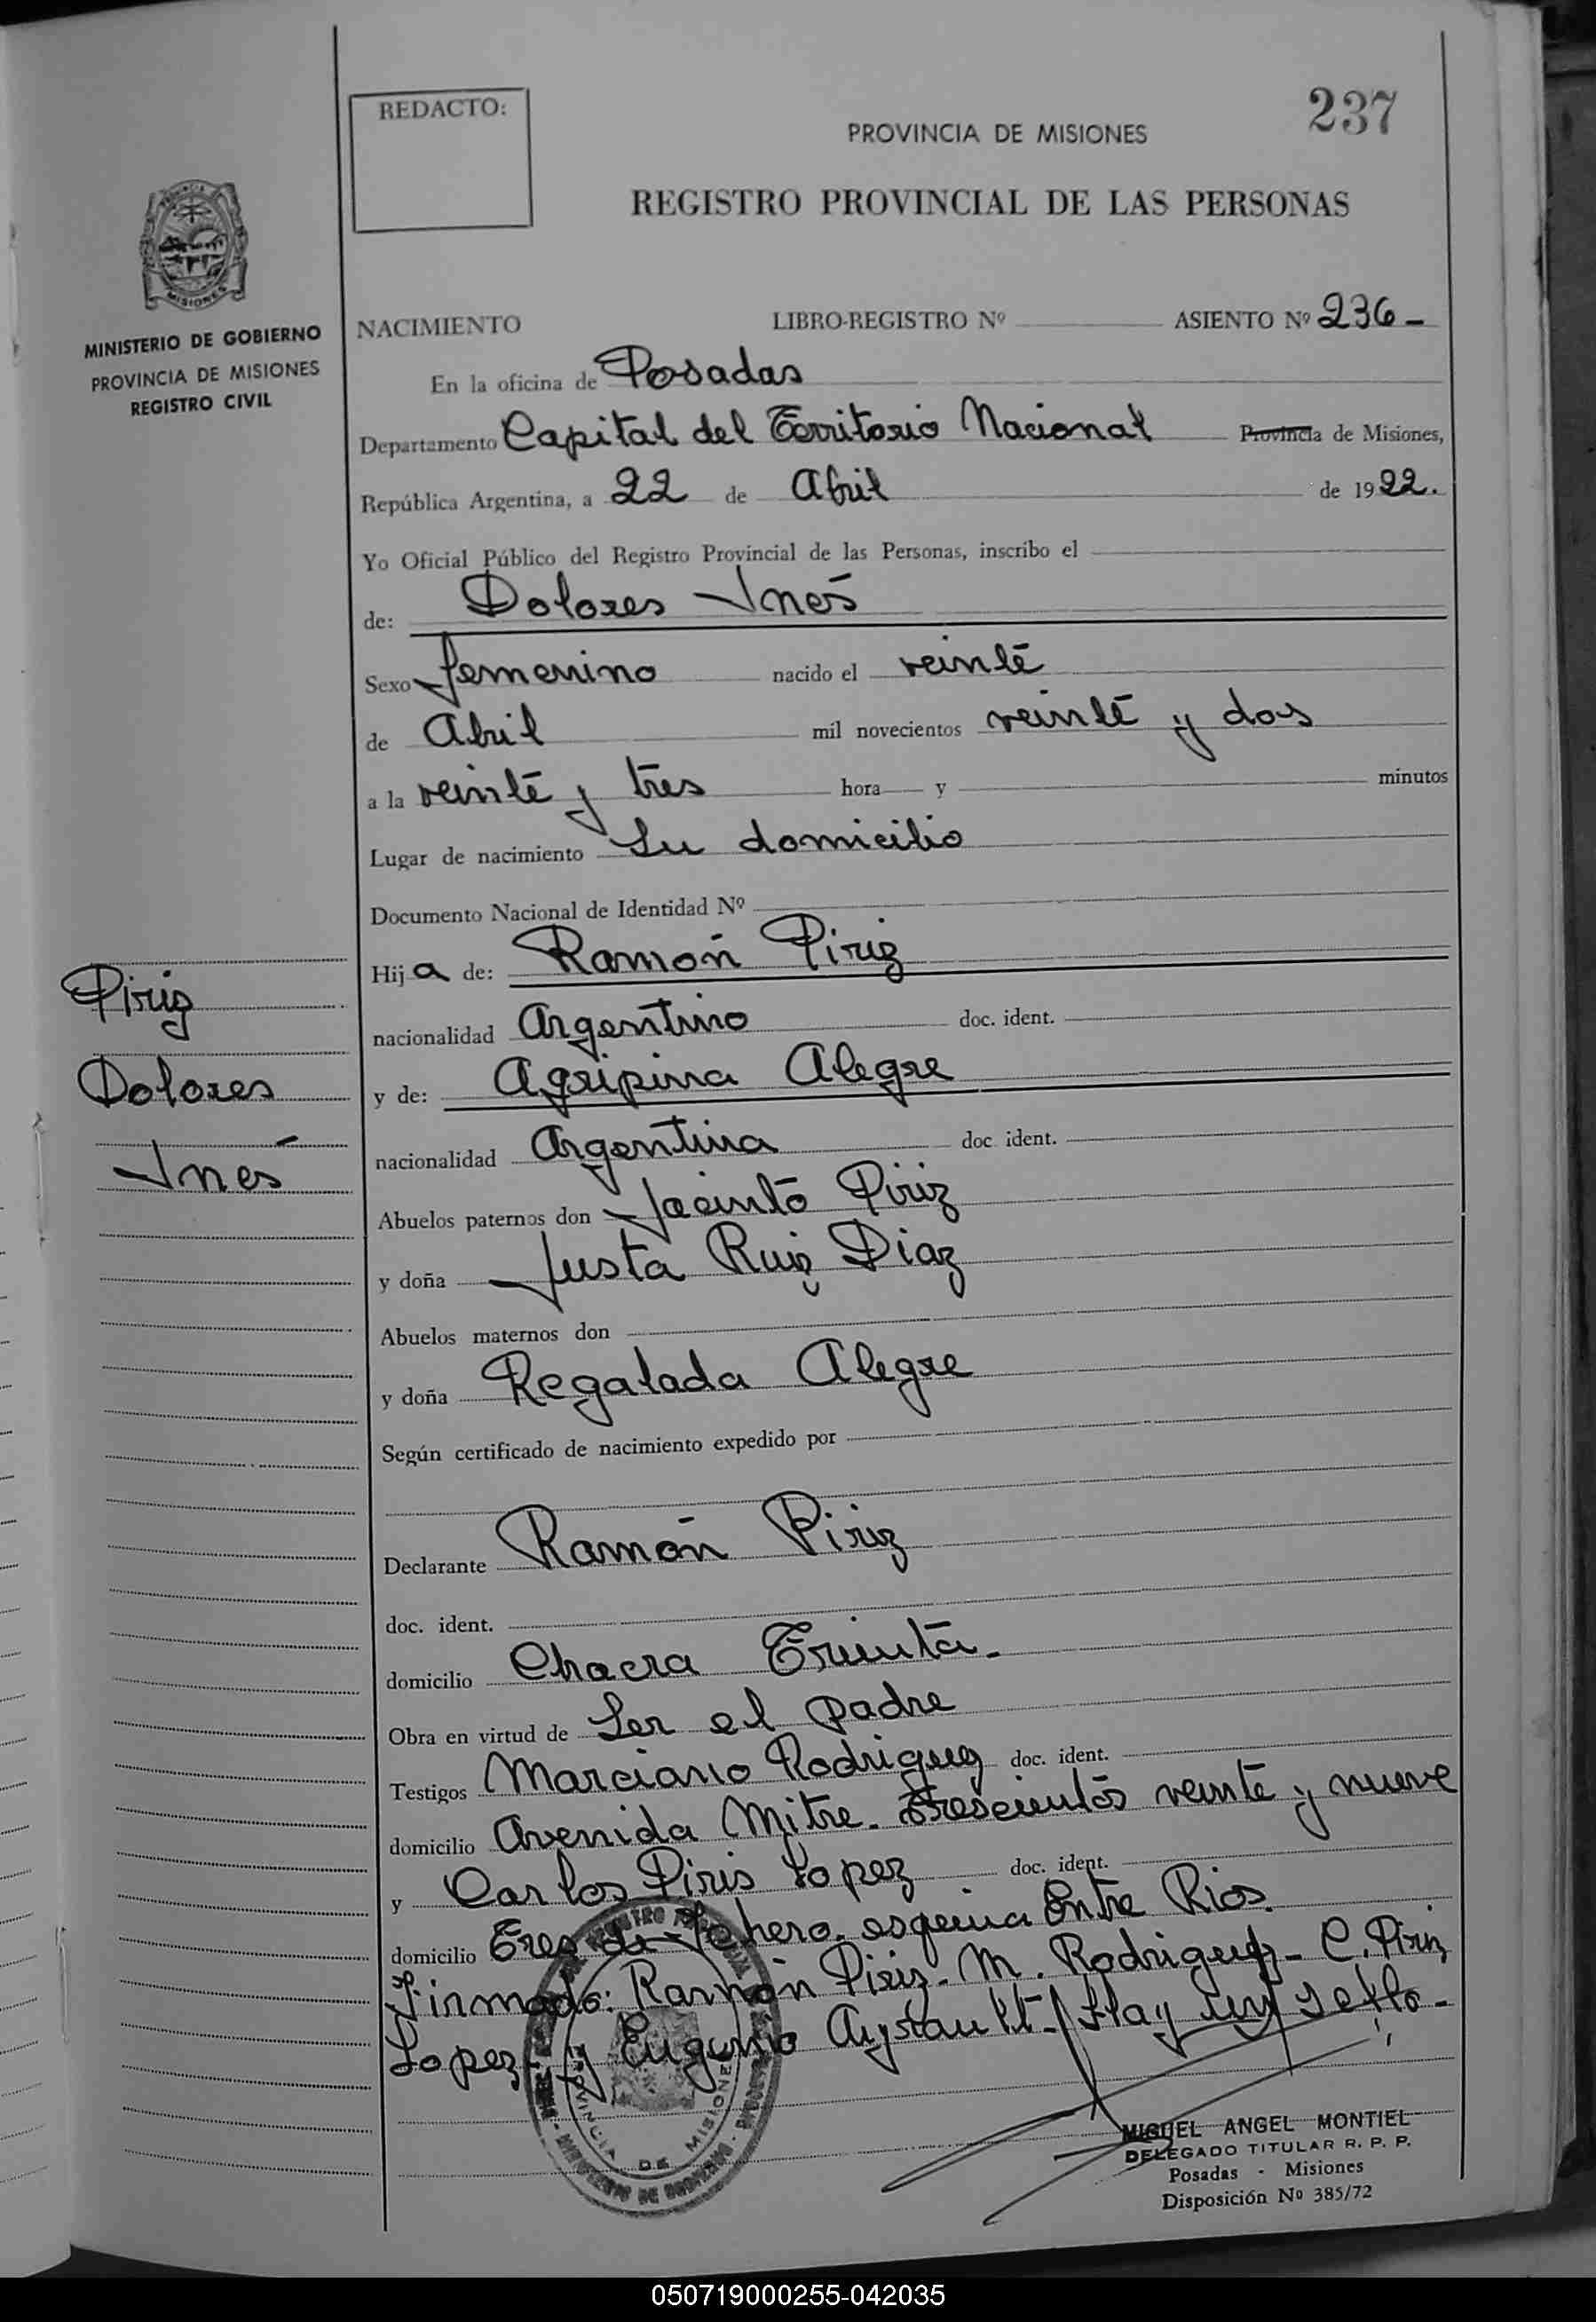 REDACTO:
237
PROVINCIA DE MISIONES
REGISTRO PROVINCIAL DE LAS PERSONAS
MISIONES
MINISTERIO DE GOBIERNO
PROVINCIA DE MISIONES
REGISTRO CIVIL
NACIMIENTO LIBRO-REGISTRO Nº ASIENTO Nº 236-
En la oficina de Posadas
Departamento Capital del Territorio Nacional Provincia de Misiones,
República Argentina, a 22 de Abril de 1922.
Yo Oficial Público del Registro Provincial de las Personas, inscribo el
de: Dolores Inés
Sexo femenino nacido el veinte
de Abril mil novecientos veinte y dos
a la veinte y tres hora y minutos
Lugar de nacimiento Su domicilio
Documento Nacional de Identidad Nº
Hija de: Ramón Piriz
nacionalidad Argentino doc. ident.
y de: Agripina Alegre
nacionalidad Argentina doc ident.
Abuelos paternos don Jacinto Piriz
y doña Justa Ruiz Diaz
Abuelos maternos don
y doña Regalada Alegre
Según certificado de nacimiento expedido por
Declarante Ramón Piriz
doc. ident.
domicilio Chacra Treinta.
Obra en virtud de Ser el padre
Testigos Marciano Rodriguez doc. ident.
domicilio Avenida Mitre. Trescientos veinte y nueve
y Carlos Piris Lopez doc. ident.
domicilio Tres de Febrero esquina Entre Rios.
Firmado: Ramón Piriz- M. Rodriguez- C. Piriz
Lopez y Eugenio / Hay un sello-
Piriz
Dolores
Inés
PROVINCIA DE MISIONES
MIGUEL ANGEL MONTIEL
DELEGADO TITULAR R. P. P.
Posadas - Misiones
Disposición Nº 385/72
050719000255-042035